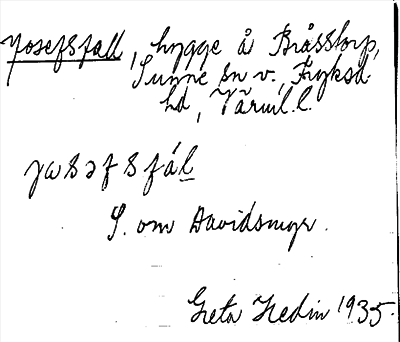 Josefsfall, bygge å Bråsstorp,
Sunne sn v., Fryksd.
hd, Värml. l.
jωsəfsfál
S. om Davidsmyr.
Greta Hedin 1935.